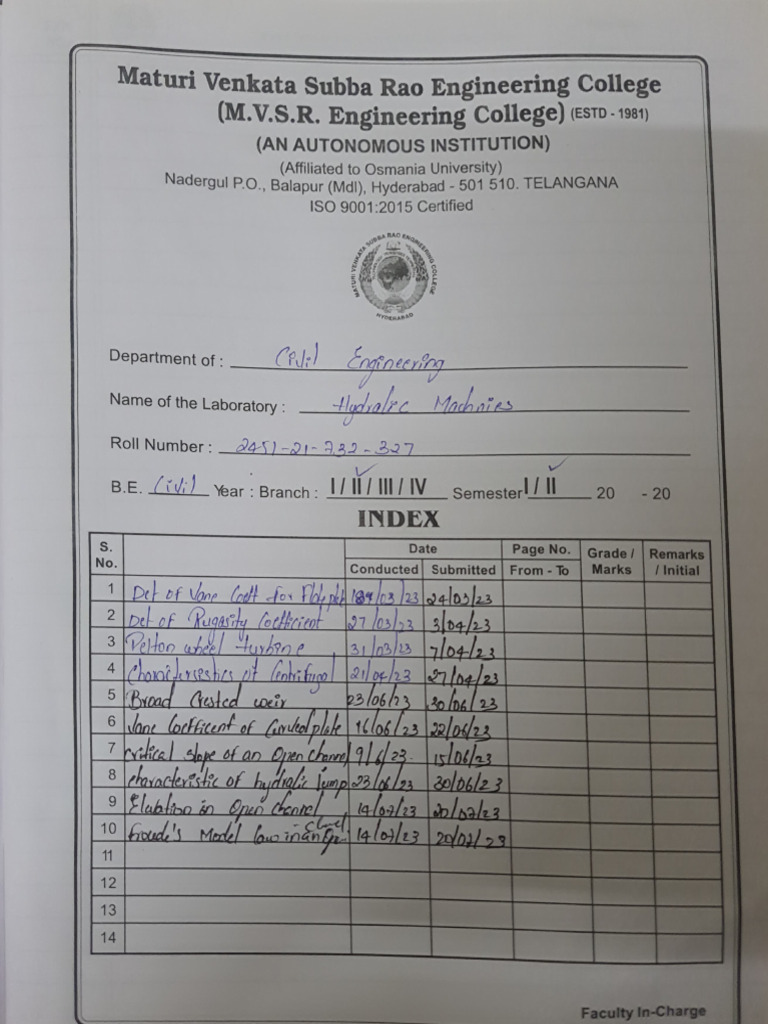 Maturi Venkata Subba Rao Engineering College
(M.V.S.R. Engineering College) (ESTD - 1981)
(AN AUTONOMOUS INSTITUTION)
(Affiliated to Osmania University)
Nadergul P.O., Balapur (Mdl), Hyderabad - 501 510. TELANGANA
ISO 9001:2015 Certified
MATURI VENKATA SUBBA RAO ENGINEERING COLLEGE
HYDERABAD
Department of : Civil Engineering
Name of the Laboratory : Hydralic Machnies
Roll Number : 2451-21-732-327
B.E. Civil Year : Branch : I / II / III / IV Semester I / II 20 - 20
INDEX
S. No. Date Page No. Grade / Marks Remarks / Initial
Conducted Submitted From - To
1 Det of Vane Coeff for Flate plet /03/23 24/03/23
2 Det of Rugasity Coefficient 27/03/23 3/04/23
3 Pelton wheel turbine 31/03/23 7/04/23
4 of Centrifugal 21/04/23 27/04/23
5 Broad Crested weir 23/06/23 30/06/23
6 Vane Coefficent of Curved plate 16/06/23 22/06/23
7 critical slope of an Open channel 9/6/23 15/06/23
8 characteristic of hydralic jump 23/06/23 30/06/23
9 in Open channel 14/07/23 20/07/23
10 Froude's Model law in an 14/07/23 20/07/23
11
12
13
14
Faculty In-Charge